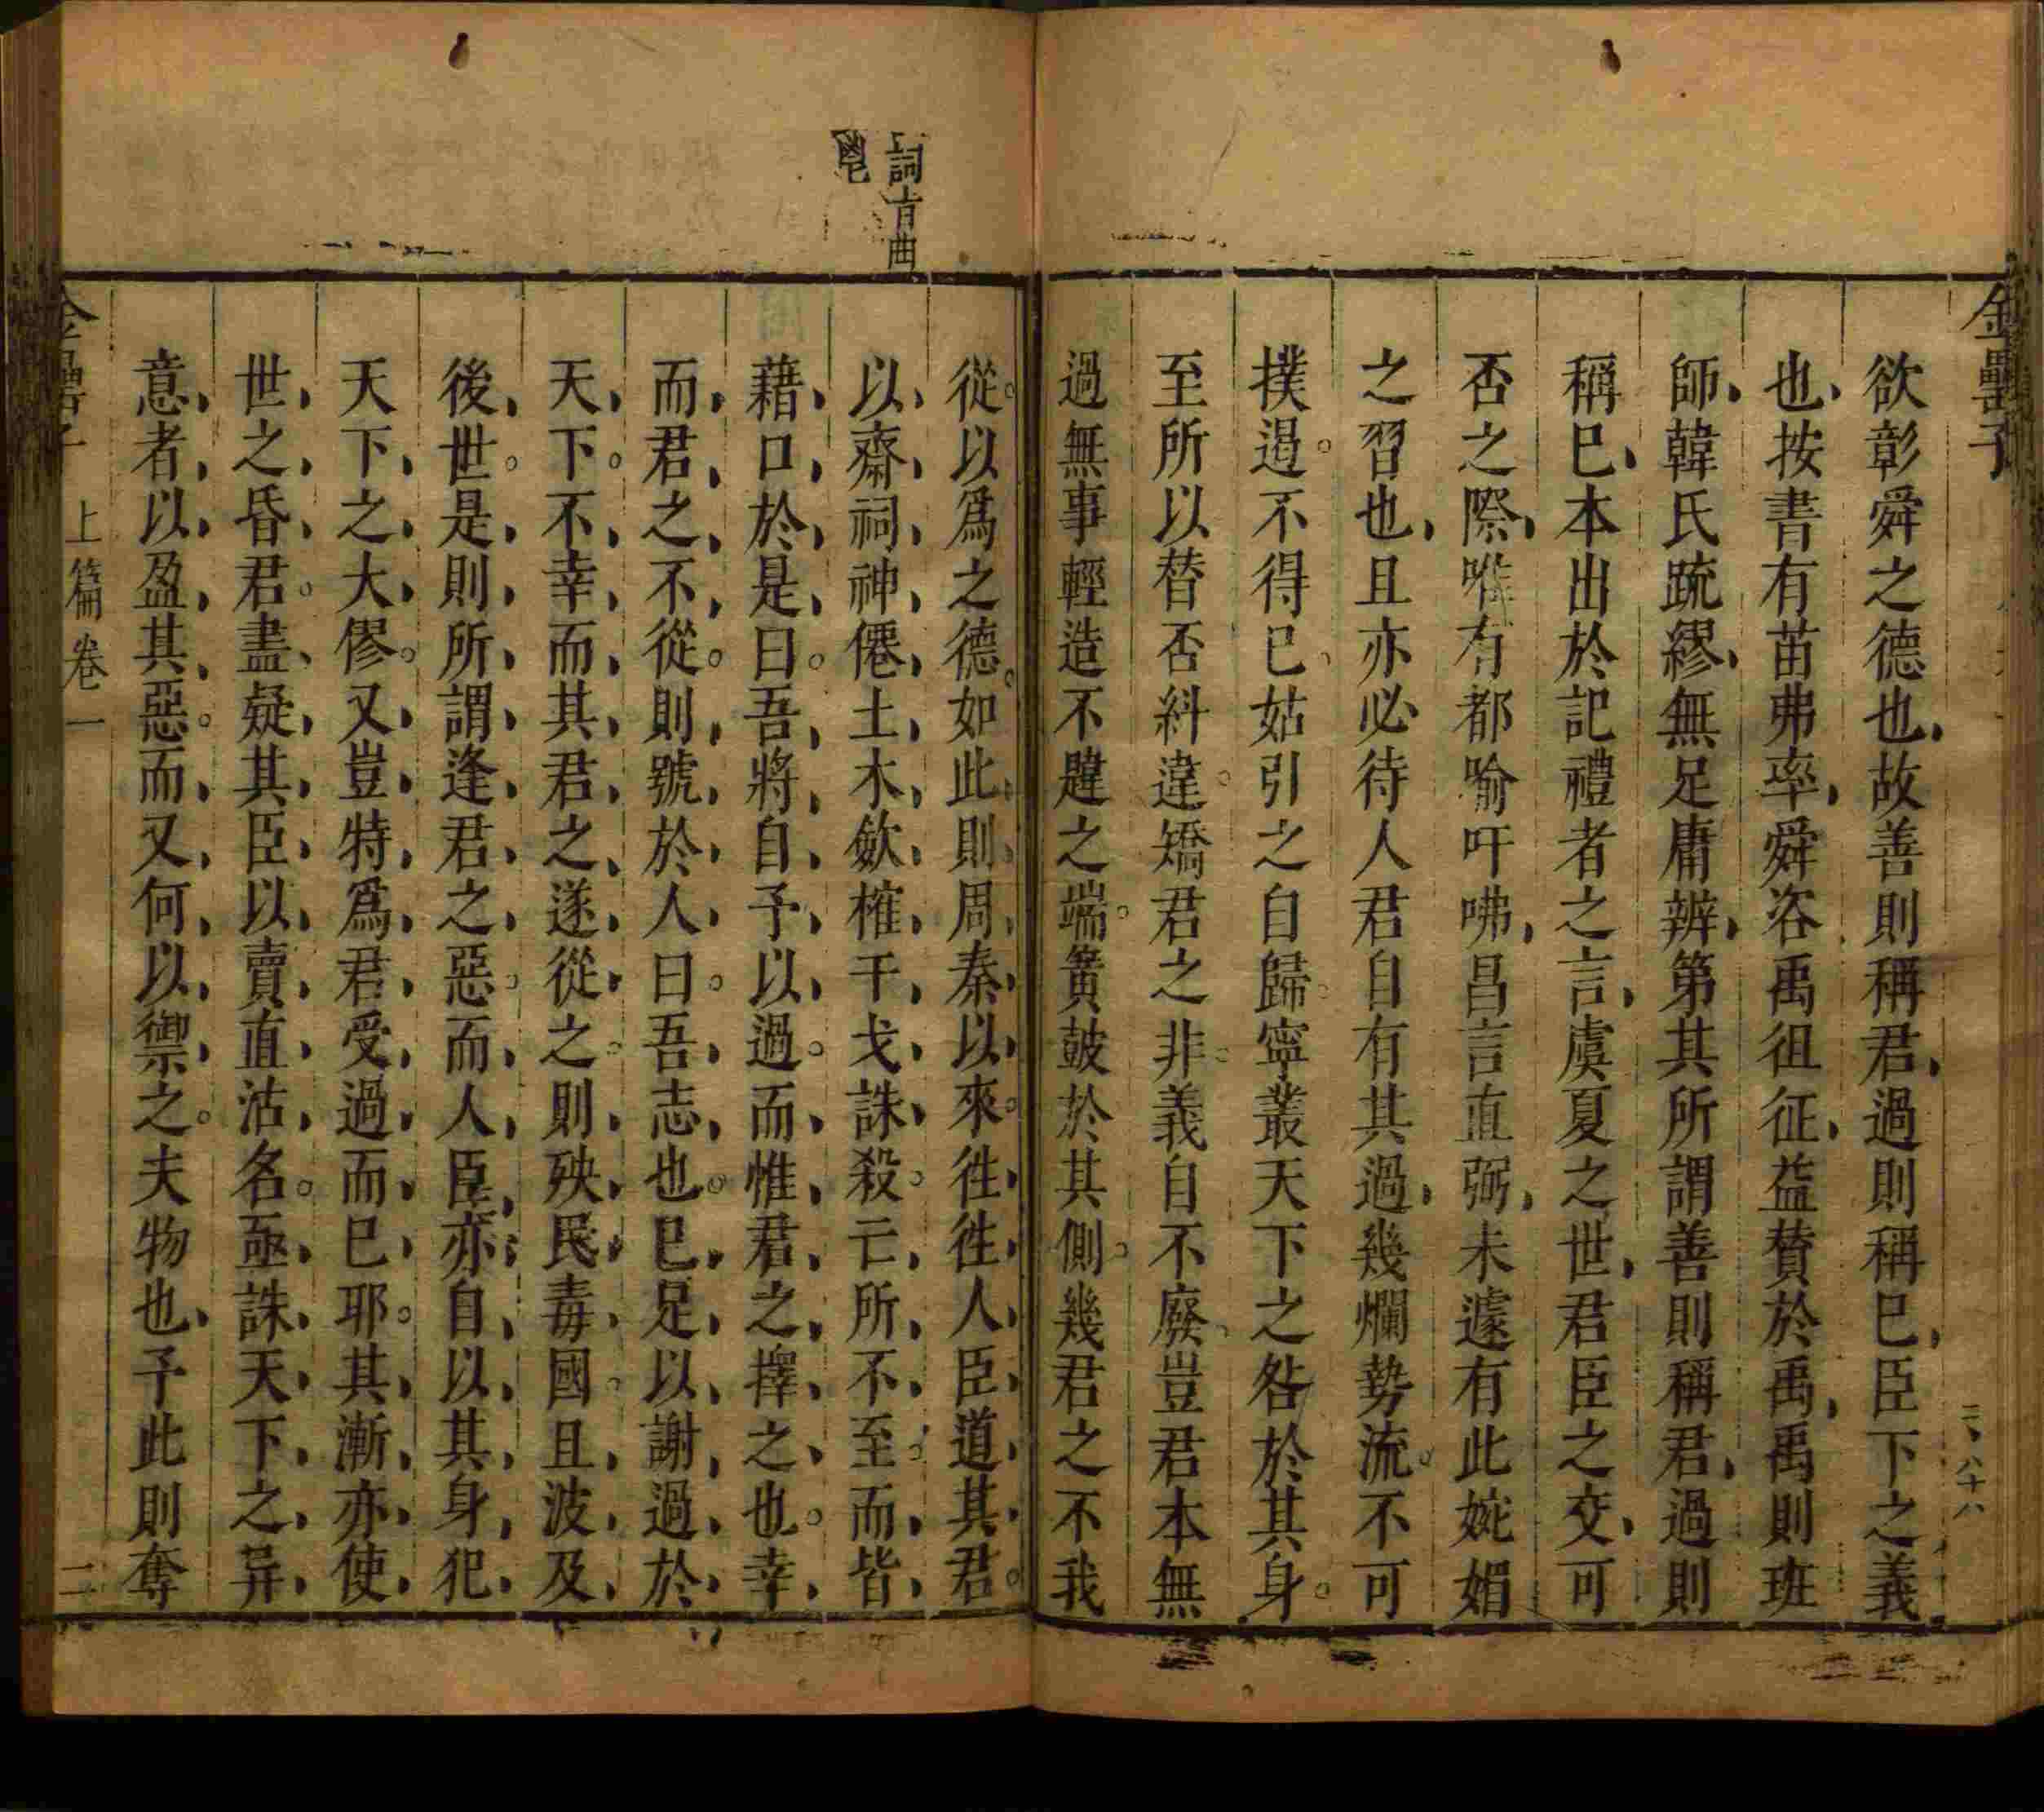 金罍子
欲彰舜之德也故善則稱君過則稱巳臣下之義
也按書有苗弗率舜咨禹徂征益賛於禹禹則班
師韓氏䟽繆無足庸辨第其所謂善則稱君過則
稱巳本出於記禮者之言虞夏之世君臣之交可
否之際唯有都喻吁咈昌言直弼未遽有此婉媚
之習也且亦必待人君自有其過幾爛勢流不可
撲遏不得巳姑引之自歸寧叢天下之咎於其身
至所以替否糾違矯君之非義自不廢豈君本無
過無事輕造不韙之端簧鼓於其側幾君之不我
從以爲之德如此則周秦以來徃徃人臣道其君
以齋祠神僊土木歛榷干戈誅殺亡所不至而皆
藉口於是曰吾將自予以過而惟君之擇之也幸
而君之不從則號於人曰吾志也巳足以謝過於
天下不幸而其君之遂從之則殃民毒國且波及
後世是則所謂逢君之惡而人臣亦自以其身犯
天下之大僇又豈特爲君受過而巳耶其漸亦使
世之昏君盡疑其臣以賣直沽名亟誅天下之异
意者以盈其惡而又何以禦之夫物也予此則奪
詞肯曲
鬯
上篇卷一
二